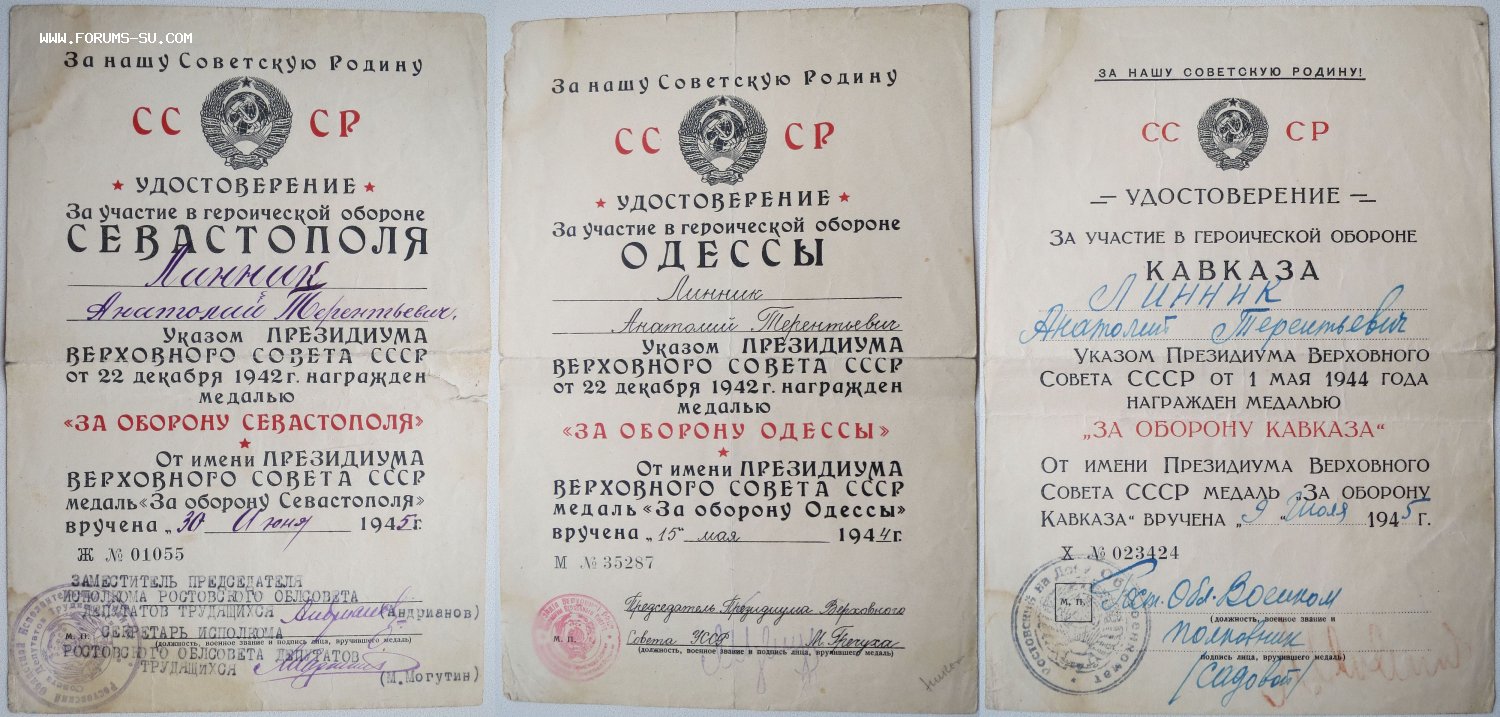 www.forums-su.com
За нашу Советскую Родину
СС СР
УДОСТОВЕРЕНИЕ
За участие в героической обороне
СЕВАСТОПОЛЯ
Линник
Анатолий Терентьевич.
Указом ПРЕЗИДИУМА
ВЕРХОВНОГО СОВЕТА СССР
от 22 декабря 1942 г. награжден
медалью
«ЗА ОБОРОНУ СЕВАСТОПОЛЯ»
От имени ПРЕЗИДИУМА
ВЕРХОВНОГО СОВЕТА СССР
медаль «За оборону Севастополя»
вручена „30 Июня 1945 г.
Ж № 01055
ЗАМЕСТИТЕЛЬ ПРЕДСЕДАТЕЛЯ
ИСПОЛКОМА РОСТОВСКОГО ОБЛСОВЕТА
ДЕПУТАТОВ ТРУДЯЩИХСЯ (Андрианов)
М. П. СЕКРЕТАРЬ ИСПОЛКОМА
(должность, военное звание и подпись лица, вручившего медаль)
РОСТОВСКОГО ОБЛСОВЕТА ДЕПУТАТОВ
ТРУДЯЩИХСЯ (М.Могутин)
За нашу Советскую Родину
СС СР
УДОСТОВЕРЕНИЕ
За участие в героической обороне
ОДЕССЫ
Линник
Анатолий Терентьевич
Указом ПРЕЗИДИУМА
ВЕРХОВНОГО СОВЕТА СССР
от 22 декабря 1942 г. награжден
медалью
«ЗА ОБОРОНУ ОДЕССЫ»
От имени ПРЕЗИДИУМА
ВЕРХОВНОГО СОВЕТА СССР
медаль «За оборону Одессы»
вручена „15" мая 1944 г.
М № 35287
Председатель Президиума Верховного
М. П. Совета УССР М. Гречуха
(должность, военное звание и подпись лица, вручившего медаль)
ЗА НАШУ СОВЕТСКУЮ РОДИНУ!
СС СР
УДОСТОВЕРЕНИЕ
ЗА УЧАСТИЕ В ГЕРОИЧЕСКОЙ ОБОРОНЕ
КАВКАЗА
Линник
Анатолий Терентьевич
УКАЗОМ ПРЕЗИДИУМА ВЕРХОВНОГО
СОВЕТА СССР ОТ 1 МАЯ 1944 ГОДА
НАГРАЖДЕН МЕДАЛЬЮ
„ЗА ОБОРОНУ КАВКАЗА“
ОТ ИМЕНИ ПРЕЗИДИУМА ВЕРХОВНОГО
СОВЕТА СССР МЕДАЛЬ „ЗА ОБОРОНУ
КАВКАЗА“ ВРУЧЕНА „9" Июля 1945 г.
Х № 023424
М. П. Рост. Обл. Военком
(должность, военное звание и
полковник
подпись лица, вручившего медаль)
/Садовой/